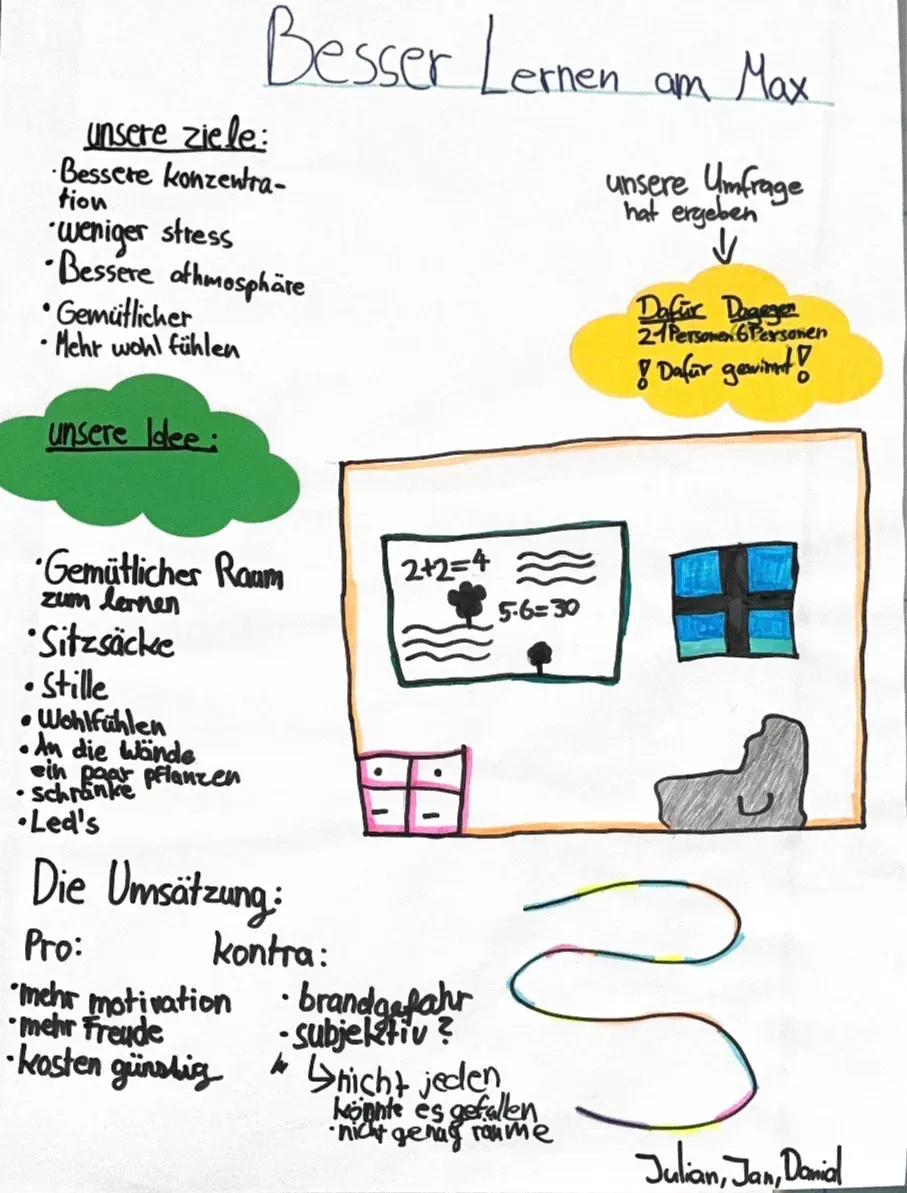 Besser Lernen am Max
unsere ziele:
·Bessere konzentra-
tion
·weniger stress
·Bessere athmosphäre
·Gemütlicher
·Mehr wohl fühlen
unsere Umfrage
hat ergeben
Dafür Dagegen
21Personen 6Personen
! Dafür gewinnt!
unsere Idee:
·Gemütlicher Raum
zum lernen
·Sitzsäcke
·Stille
·Wohlfühlen
·An die Wände
ein paar pflanzen
·schränke
·Led's
2+2=4
5·6=30
Die Umsätzung:
Pro:
·mehr motivation
·mehr Freude
·kosten günstig
kontra:
·brandgefahr
·subjektiv?
↳nicht jeden
könnte es gefallen
·nicht genug räume
Julian, Jan, Danial